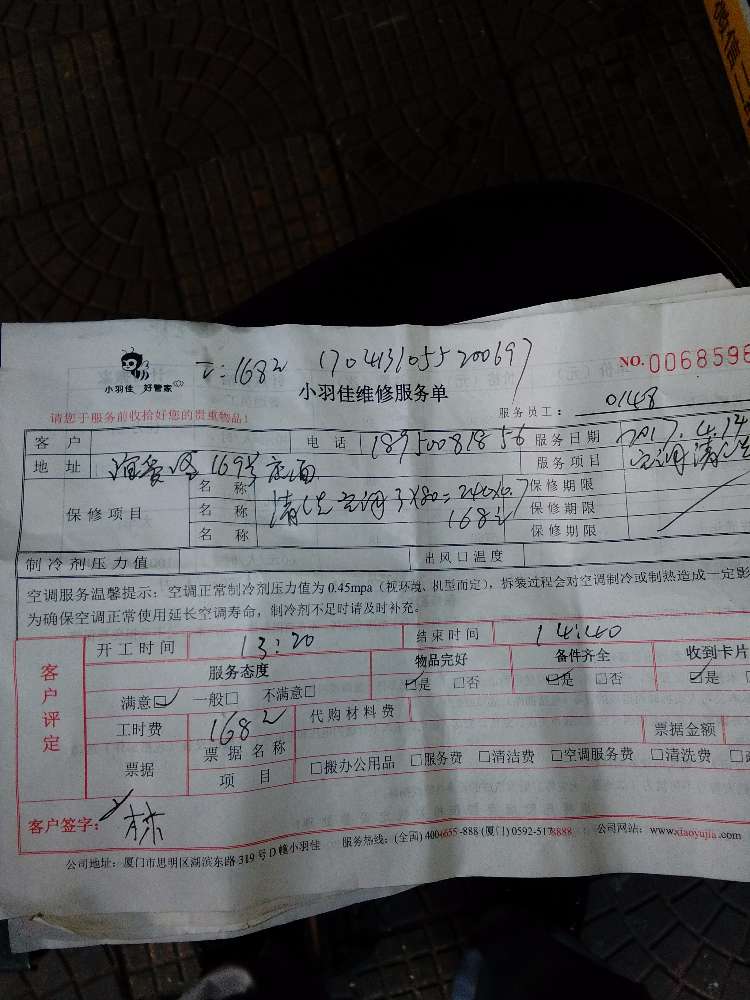 微信
168元 1704131055200697
NO. 0068596
小羽佳 好管家
小羽佳维修服务单
请您于服务前收拾好您的贵重物品!
服务员工: 0148
客户 电话 18950081856 服务日期 2017.4.14
地址 169号店面 服务项目 空调清洗
保修项目 名称 清洗空调3X80=240X0.7 保修期限
名称 168元 保修期限
名称 保修期限
制冷剂压力值 出风口温度
空调服务温馨提示:空调正常制冷剂压力值为0.45mpa(视环境、机型而定),拆装过程会对空调制冷或制热造成一定影
为确保空调正常使用延长空调寿命,制冷剂不足时请及时补充。
客户评定
开工时间 13:20 结束时间 14:40
服务态度 物品完好 备件齐全 收到卡片
满意☑ 一般□ 不满意□ ☑是 □否 ☑是 □否 ☑是
工时费 168元 代购材料费
票据 票据名称 票据金额
项目 □搬办公用品 □服务费 □清洁费 □空调服务费 □清洗费
客户签字: 林
公司地址:厦门市思明区湖滨东路319号D幢小羽佳 服务热线:(全国)4004655-888(厦门)0592-5178888 公司网站:www.xiaoyujia.com